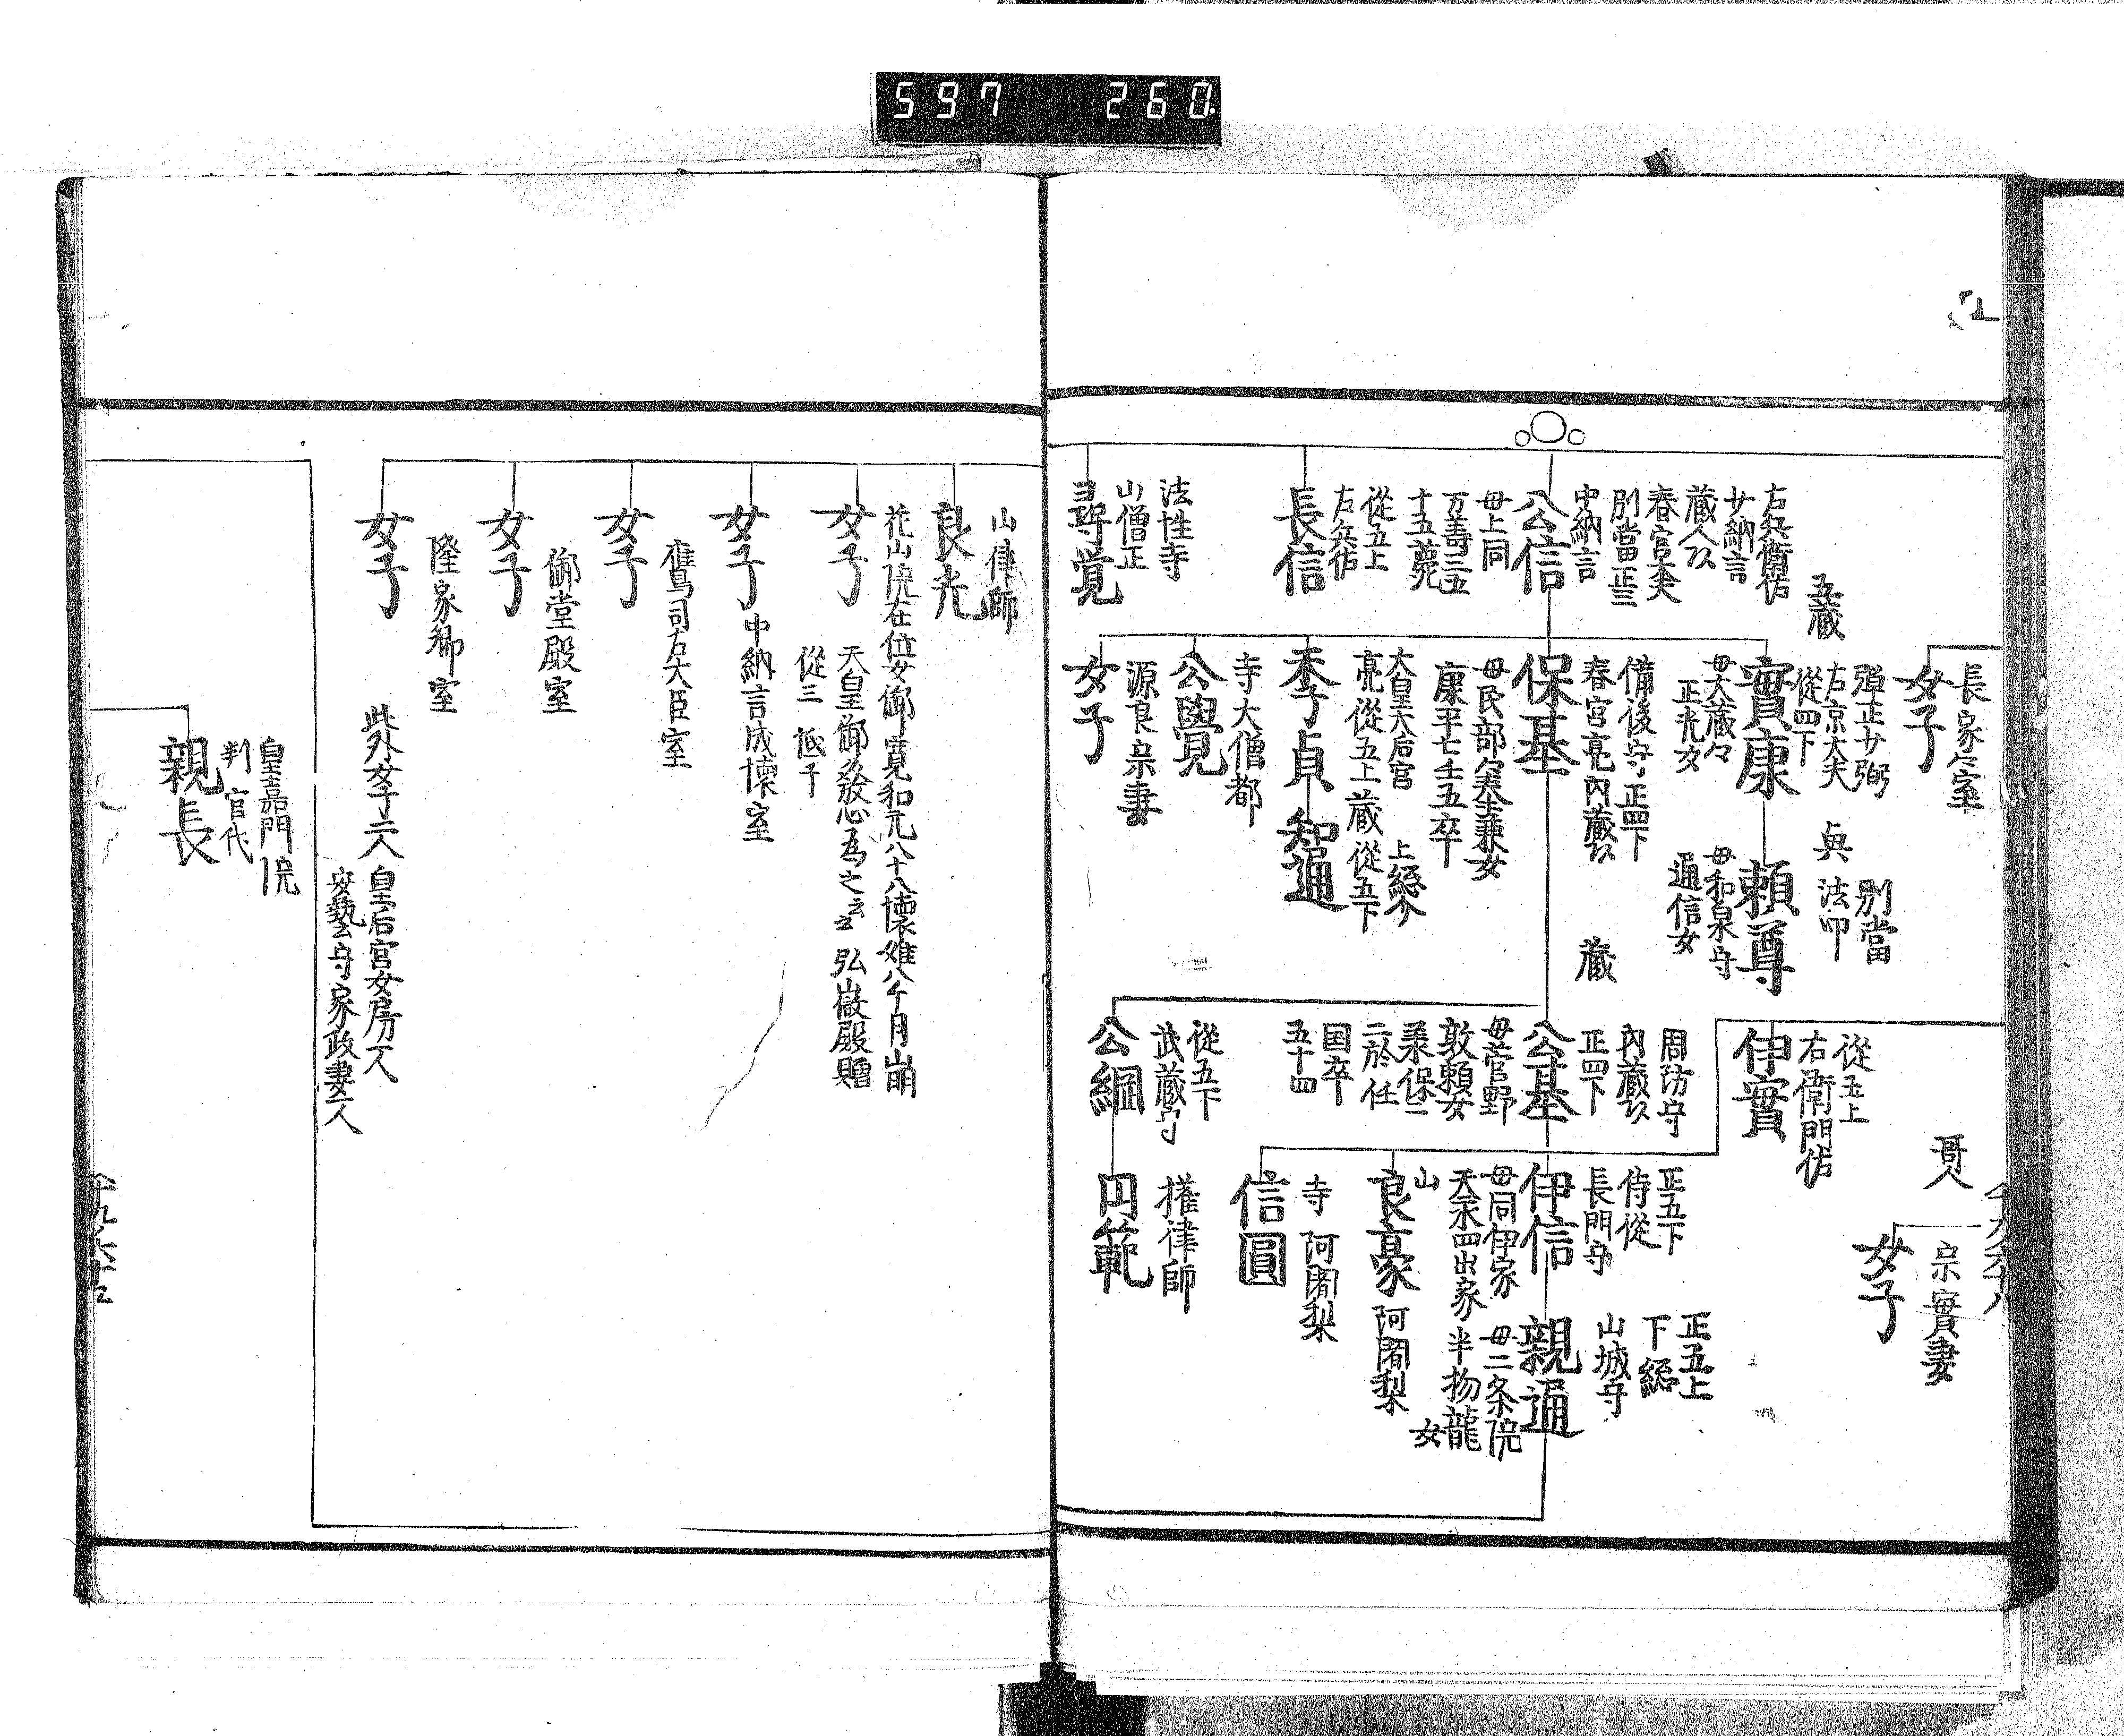 597 260
長家々室
女子
五蔵
弾正少弼
左京大夫
從四下
實康
母大蔵々
正光女
別當
法印
與
頼尊
母和泉守
通信女
從五上
右衛門佐
伊實
哥人
宗實妻
女子
左兵衛佐
少納言
蔵人頭
春宮大夫
別當正三
中納言
公信
母上同
万壽三五
十五薨
備後守正四下
春宮亮内蔵頭
保基
母民部
兼女
康平七壬五卒
蔵
周防守
内蔵頭
正四下
公基
母菅野
敦頼女
承保二
二於任
国卒
五十四
正五下
侍從
長門守
伊信
母同伊家
天永四出家
正五上
下総
山城守
親通
母二条院
半物龍
女
山
良豪
阿闍梨
寺 阿闍梨
信圓
從五上
左兵佐
長信
大皇大后宮
亮從五上蔵
季貞
上総介
從五下
智通
寺大僧都
公覺
源良宗妻
女子
從五下
武蔵守
公綱
權律師
円範
法性寺
山僧正
尋覚
山律師
良光
花山院在位女御寛和元八十八懐妊八ケ月崩
女子
天皇御發心為之云々 弘徽殿贈
從三 忯子
女子
中納言成懐室
鷹司右大臣室
女子
御堂殿室
女子
隆家卿室
女子
此外女子二人
皇后宮女房一人
安藝守家政妻一人
皇嘉門院
判官代
親長